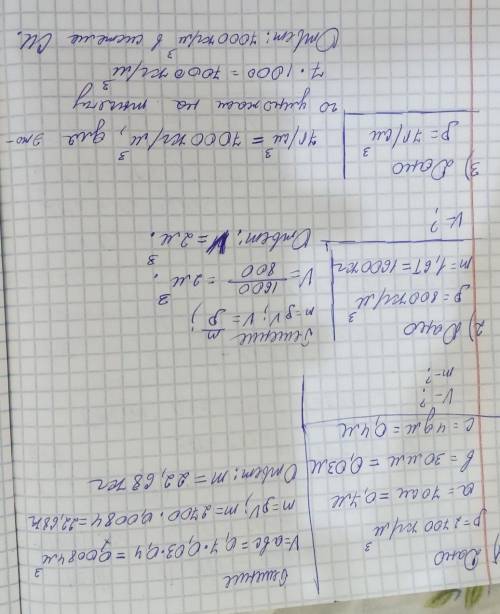 1) Дано
ρ=2700 кг/м³
a = 70 см = 0,7м
b = 30 мм = 0,03м
c = 4 дм = 0,4м
V-?
m-?
Решение
V=abc = 0,7·0,03·0,4 = 0,0084м³
m=ρV; m=2700·0,0084=22,68кг
Ответ: m = 22,68кг
2) Дано
ρ= 800 кг/м³
m=1,6т=1600кг
V-?
Решение
m=ρV; V= m/ρ;
V= 1600/800 = 2м³.
Ответ: V=2м³.
3) Дано
ρ=7г/см³
7г/см³ = 7000 кг/м³, для это-
го умножаем на тысячу
7·1000 = 7000 кг/м³
Ответ: 7000кг/м³ в системе СИ.